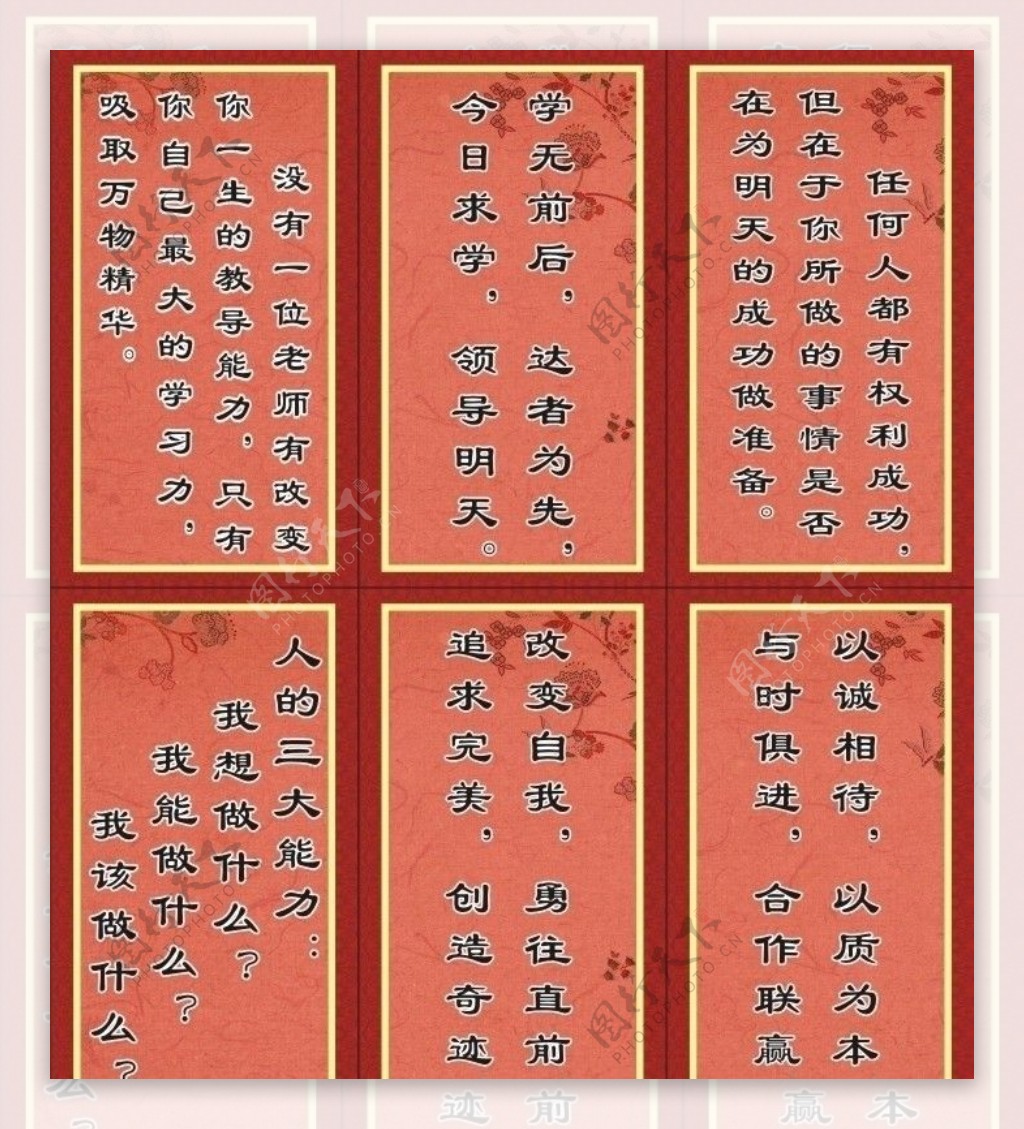 没有一位老师有改变
你一生的教导能力，只有
你自己最大的学习力，
吸取万物精华。
学无前后，达者为先，
今日求学，领导明天。
任何人都有权利成功，
但在于你所做的事情是否
在为明天的成功做准备。
人的三大能力：
我想做什么？
我能做什么？
我该做什么？
改变自我，勇往直前
追求完美，创造奇迹
以诚相待，以质为本
与时俱进，合作联赢
图行天下
PHOTOPHOTO.CN